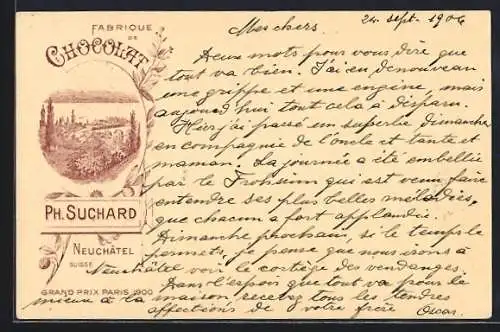 FABRIQUE
DE
CHOCOLAT
PH. SUCHARD
NEUCHÂTEL
SUISSE
GRAND PRIX PARIS 1900
24 sept. 1906
Mes chers.
Deux mots pour vous dire que
tout va bien. J'ai eu de nouveau
une grippe et une engine, mais
aujourd'hui tout cela a disparu.
Hier j'ai passé un superbe dimanche
en compagnie de l'oncle et tante et
maman. La journée a été embellie
par le Frohsinn qui est venu faire
entendre ses plus belles mélodies,
que chacun a fort applaudie.
Dimanche prochain, si le temps le
permets, je pense que nous irons à
Neuchâtel voir le cortège des vendanges.
Dans l'espoir que tout va pour le
mieux à la maison recevez tous les tendres
affections de votre frère Oscar.